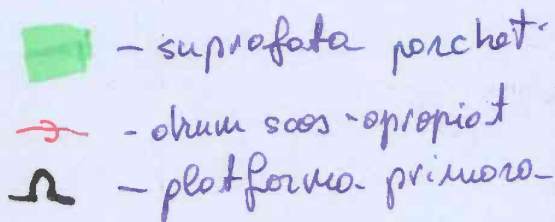 - suprafata parchet
- drum scos-apropiat
- platforma primara